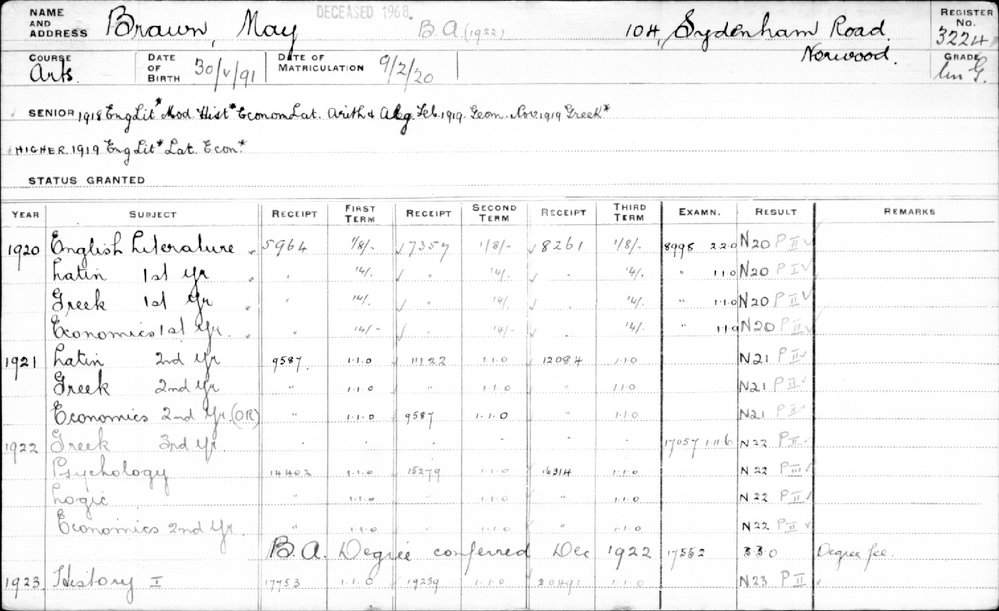 NAME AND ADDRESS Brown, May DECEASED 1968. B.A. (1922) 104, Sydenham Road, Norwood. REGISTER No. 3224
COURSE Arts. DATE OF BIRTH 30/V/91 DATE OF MATRICULATION 9/2/20 GRADE
SENIOR 1918 Eng Lit* Mod Hist* Econom Lat. Arith & Alg. Feb. 1919. Geom. Nov. 1919 Greek*
HIGHER 1919 Eng Lit* Lat. Econ*
STATUS GRANTED
YEAR SUBJECT RECEIPT FIRST TERM RECEIPT SECOND TERM RECEIPT THIRD TERM EXAMN. RESULT REMARKS
1920 English Literature 5964 1/8/- 7357 1/8/- 8261 1/8/- 8998 2.2.0 N20 P II
Latin 1st Yr " 14/. " 14/. " 14/. " 1.1.0 N20 P I
Greek 1st Yr " 14/. " 14/. " 14/. " 1.1.0 N20 P II
Economics 1st Yr. " 14/- " 14/- " 14/- " 1.1.0 N20 P II
1921 Latin 2nd Yr 9587 1.1.0 11122 1.1.0 12084 1.1.0 N21 P II
Greek 2nd Yr " 1.1.0 " 1.1.0 " 1.1.0 N21 P II
Economics 2nd Yr. (OR) " 1.1.0 9587 1.1.0 " 1.1.0 N21 P II
1922 Greek 3rd Yr. " " " " " " 17057 N22 P II
Psychology 14403 1.1.0 15279 1.1.0 16314 1.1.0 N22 P III
Logic " 1.1.0 " 1.1.0 " 1.1.0 N22 P II
Economics 2nd Yr. " 1.1.0 " 1.1.0 " 1.1.0 N22 P II
B.A. Degree conferred Dec 1922 17562 3 3 0 Degree fee.
1923 History I 17753 1.1.0 19239 1.1.0 20491 1.1.0 N23 P II